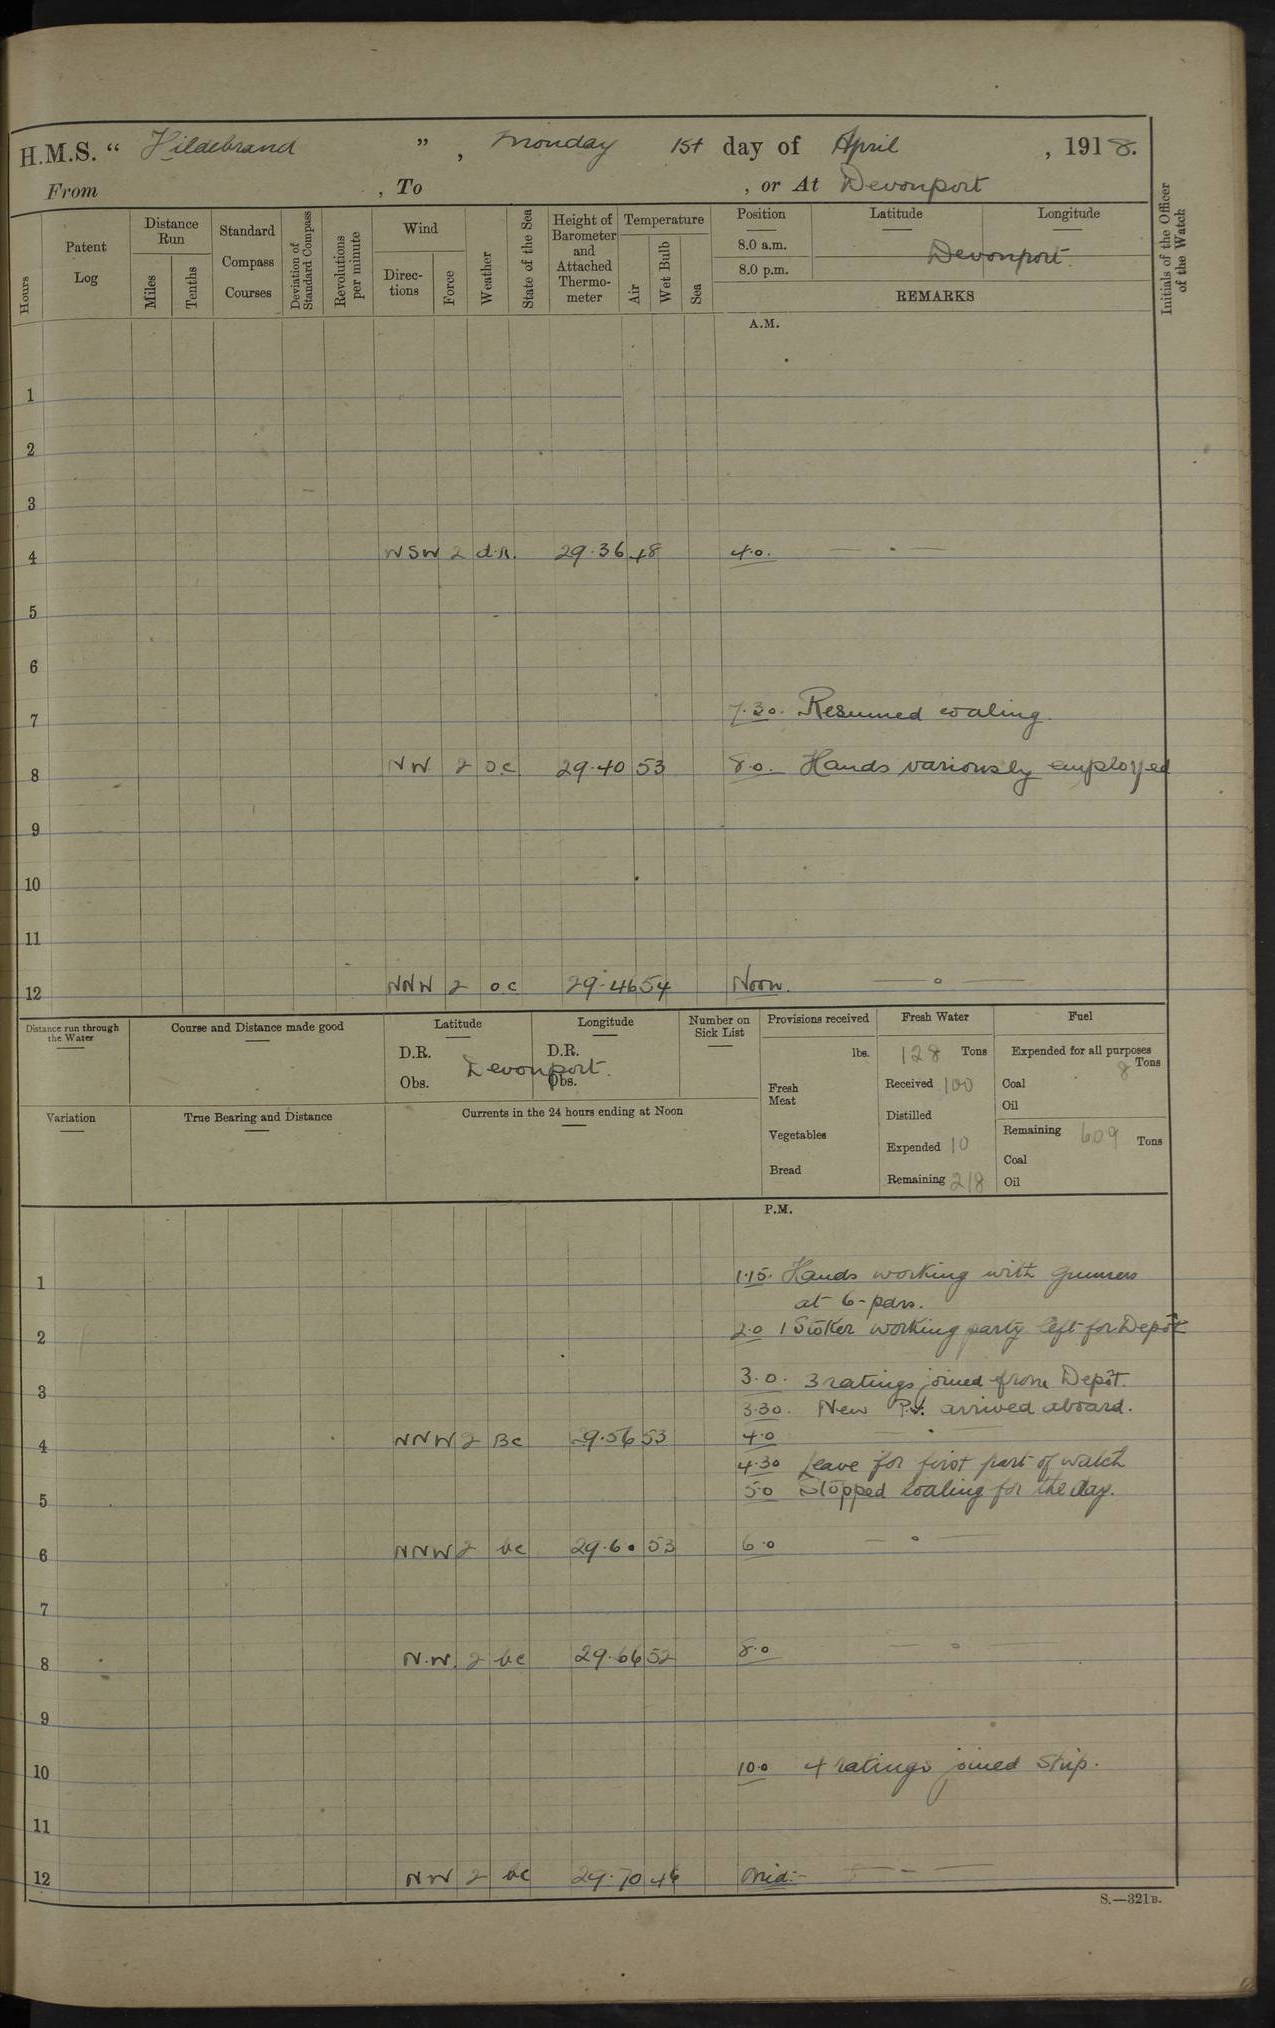 H.M.S. “ Hildebrand ” , Monday 1st day of April , 1918.
From , To , or At Devonport
Hours
Patent Log
Distance Run
Miles
Tenths
Standard Compass Courses
Deviation of Standard Compass
Revolutions per minute
Wind
Direc-tions
Force
Weather
State of the Sea
Height of Barometer and Attached Thermo-meter
Temperature
Air
Wet Bulb
Sea
Position Latitude Longitude
8.0 a.m.
Devonport.
8.0 p.m.
REMARKS
Initials of the Officer of the Watch
A.M.
1
2
3
4 WSW 2 d.R. 29.36 48 4.0. — . —
5
6
7 7.30. Resumed coaling.
8 NW 2 O.C 29.40 53 8.0. Hands variously employed
9
10
11
12 NNW 2 o.c 29.46 54 Noon. — o —
Distance run through the Water
Course and Distance made good
Latitude
Longitude
D.R. D.R.
Devonport.
Obs. Obs.
Number on Sick List
Provisions received
lbs.
Fresh Meat
Vegetables
Bread
Fresh Water
128 Tons
Received 100
Distilled
Expended 10
Remaining 218
Fuel
Expended for all purposes
8 Tons
Coal
Oil
Remaining 609 Tons
Coal
Oil
Variation
True Bearing and Distance
Currents in the 24 hours ending at Noon
P.M.
1 1.15. Hands working with Gunners
at 6-pdrs.
2 2.0 1 Stoker working party left for Depôt
3 3.0. 3 ratings joined from Depôt.
3.30. New arrived aboard.
4 NNW 2 BC 29.56 53 4.0 — . —
4.30 Leave for first part of watch
5 5.0 Stopped coaling for the day.
6 NNW 2 bc 29.60 53 6.0 — . —
7
8 N.W. 2 bc 29.66 52 8.0 — o —
9
10 10.0 4 ratings joined Ship.
11
12 NW 2 bc 29.70 46 Mid:- — - —
S.—321B.